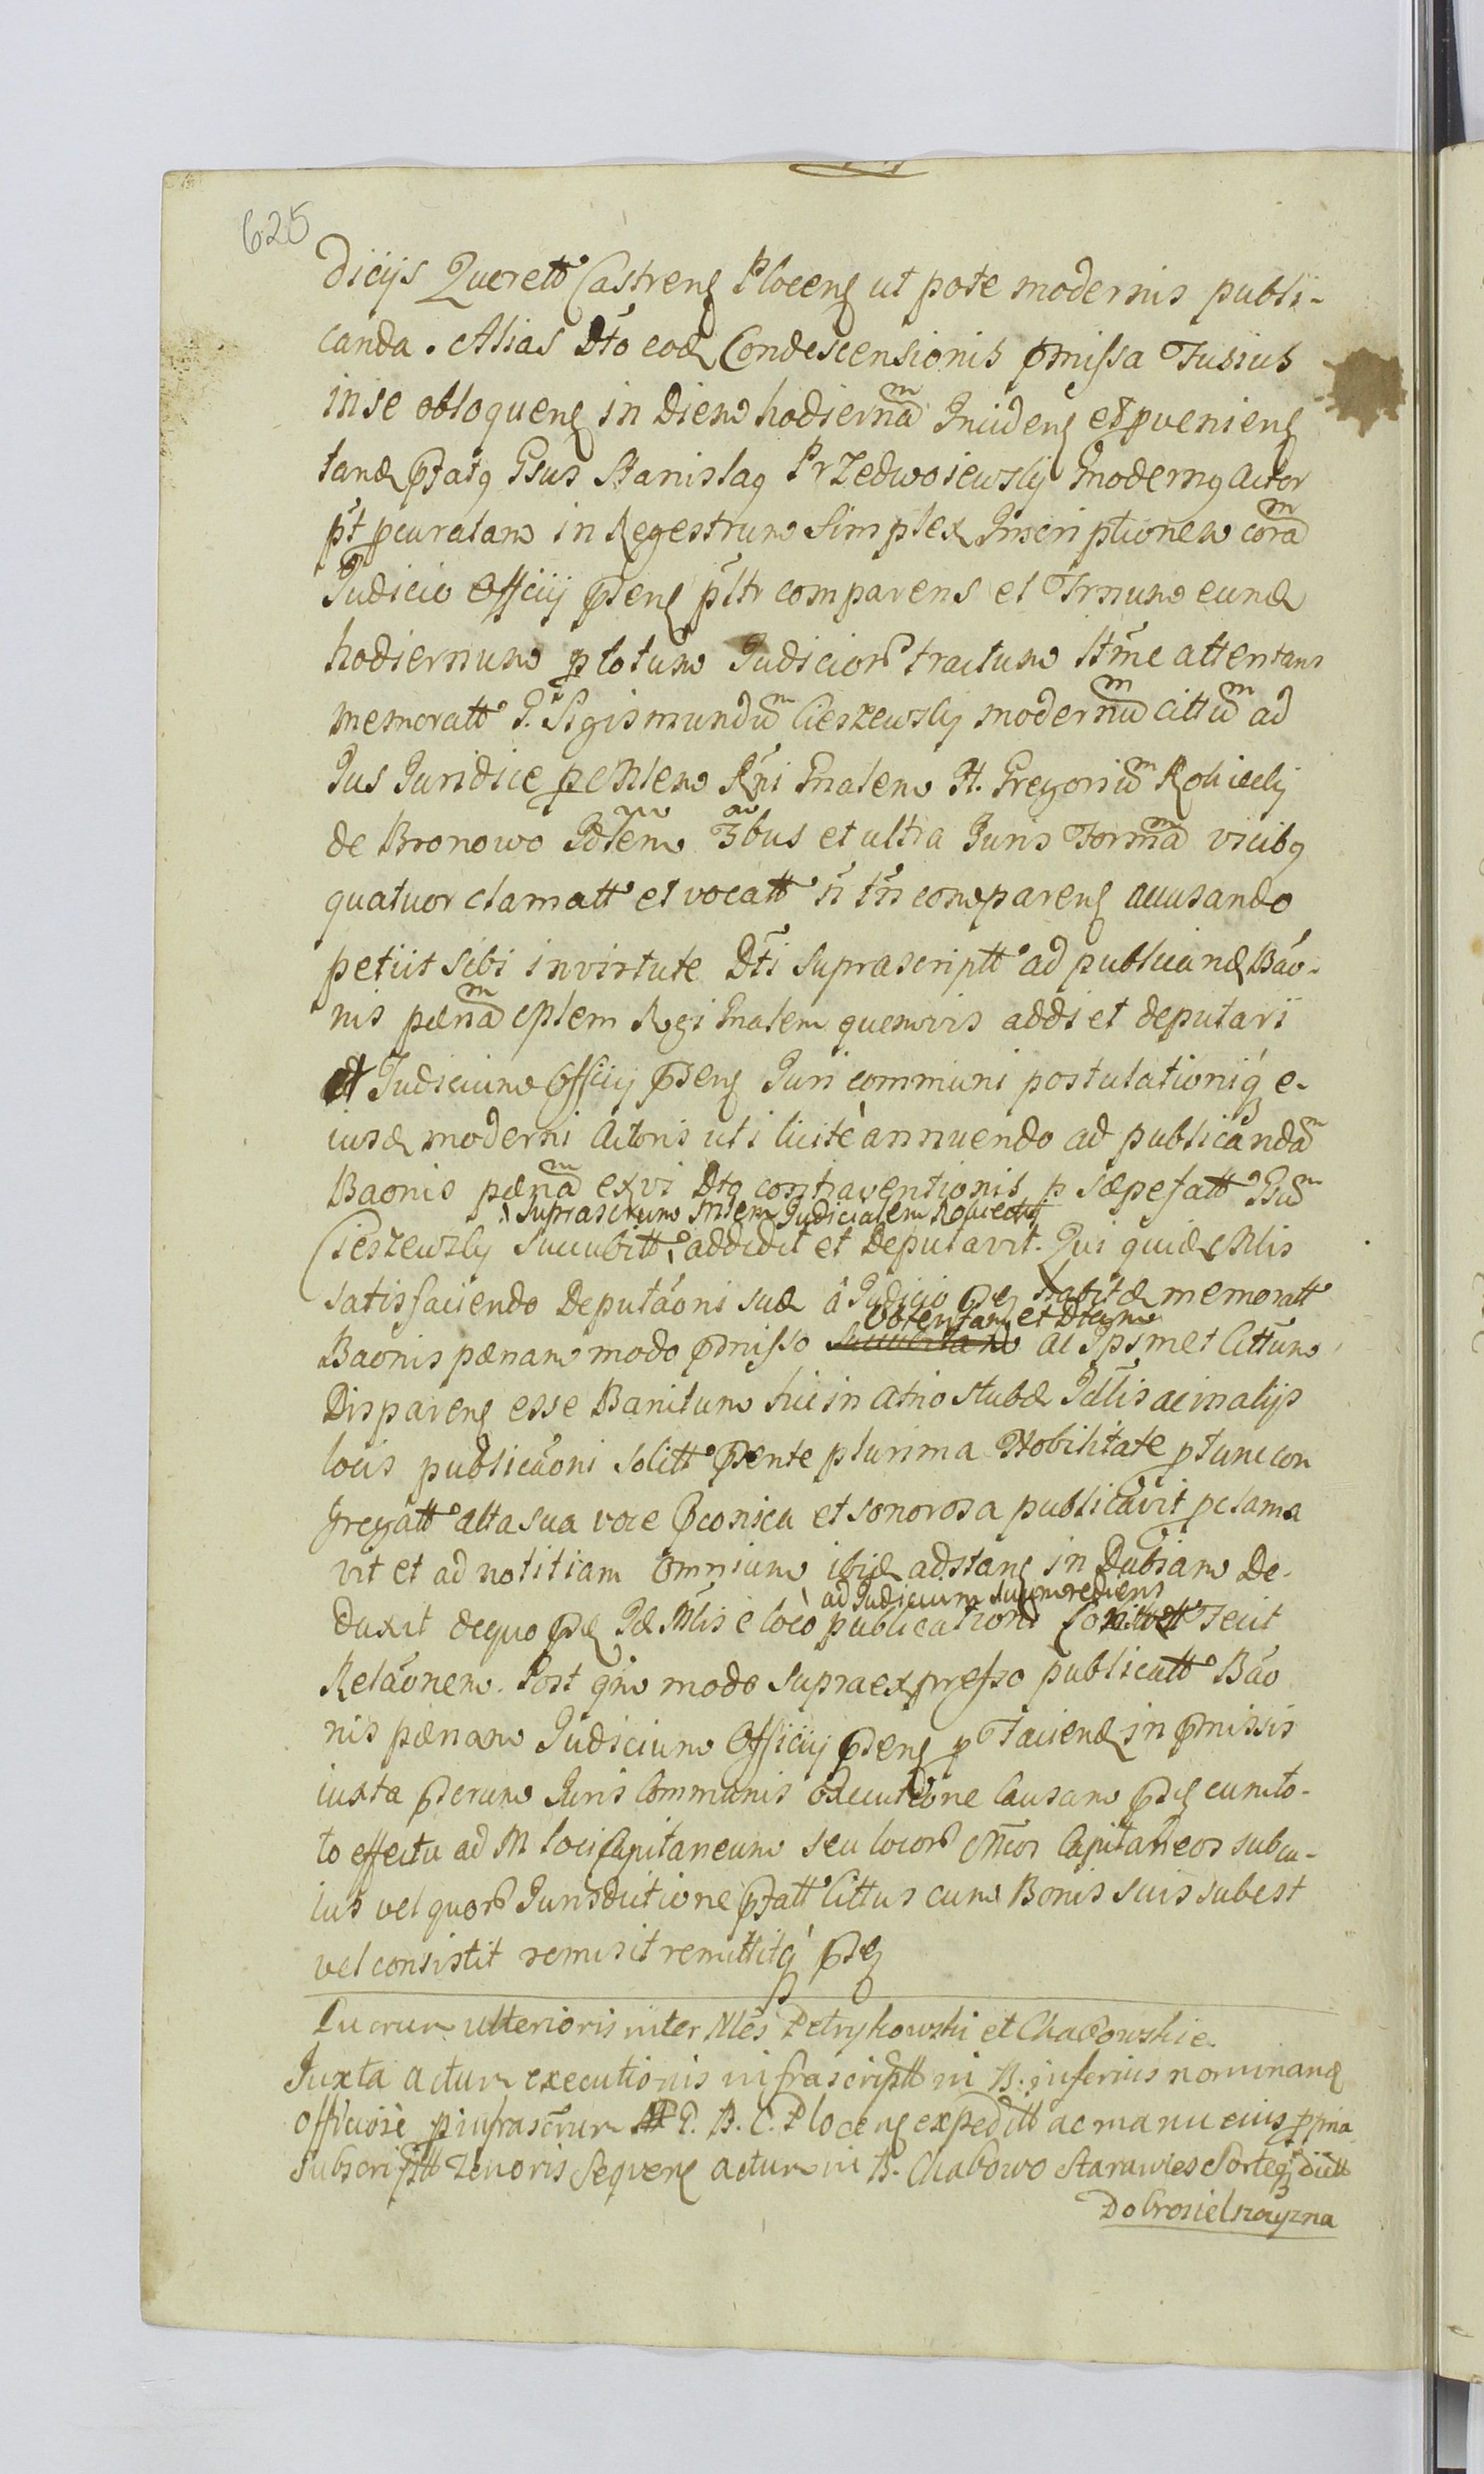 625
dicijs Querett Castreng Ploceng ut pote modernis publi-
canda. Alias Dto eod Condescensionis pmissa Fusius
in se obloqueng in Diem hodiernam Incideng et pvenieng
tand pfatq Gsus Stanislaq Przedwoiewsky modernq Actor
pt pcuratam in Regestrum Simplex Inscriptionem coram
Judicio Officij pseng psltr comparens et Trnum eund
hodiernum p totum Judicior tractum ltme attentans
memoratt G. Sigismundum Cieszewsky modernum cittum ad
Jus Juridice pe Mlem Rni Gnalem H. Gregorium Robicely
de Bronowo Jdlem 3bus et ultra Juris Formam vicibq
quatuor clamatt et vocatt n tn compareng accusando
petiit sibi in virtute Dti suprascriptt ad publicand Bao-
nis pænam eplem Regi Gnalem quemvis addi et deputari
et Judicium Officij pseng Juri communi postulationiq e-
iusd moderni Actoris uti licite annuendo ad publicandam
Baonis pænam ex vi Dtq contraventionis p sæpefatt Gsum
suprascrum Mlem Judicialem Robiecky
Cieszewsky succubitt addidit et Deputavit. Qui quid Mlis
satisfaciendo Deputaoni suæ a Judicio pseg habitæ memoratt
obtentam et Dtam
Baonis pænam modo pmisso succubitam ac Ipsmet Cittum
Dispareng esse Banitum hic in atrio stubæ Jdlis ac in alijs
locis publicaoni solitt psente plurima Nobilitate p tunc con
gregatt alta sua voce pconica et sonorosa publicavit pclama
vit et ad notitiam omnium ibid adstang in Dubiam De-
ad Judicium suum rediens
duxit de quo pse Jd Mlis e loco publicationi solitt Fecit
Relaonem. Post qm modo supra expresso publicatt Bao
nis pænam Judicium Officij pseng p Faciend in pmissis
iuxta pserum Juris Communis executione Causam pseg cum to-
to effectu ad M loci Capitaneum seu locor Mcos Capitaneos sub cu-
ius vel quor Jurisdictione pfatt Cittus cum Bonis suis subest
vel consistit remisit remittitq pseg
Lucrum ulterioris inter Nles Petrykowski et Chabowskie.
Juxta actum executionis infrascriptt in B. inferius nominand
officiose p infrascrum G. B. C. Ploceng expeditt ac manu eius ppria
subscriptt Tenoris sequeng actum in B. Chabowo Starawies Sorteq dictt
Dobrosielszczyzna